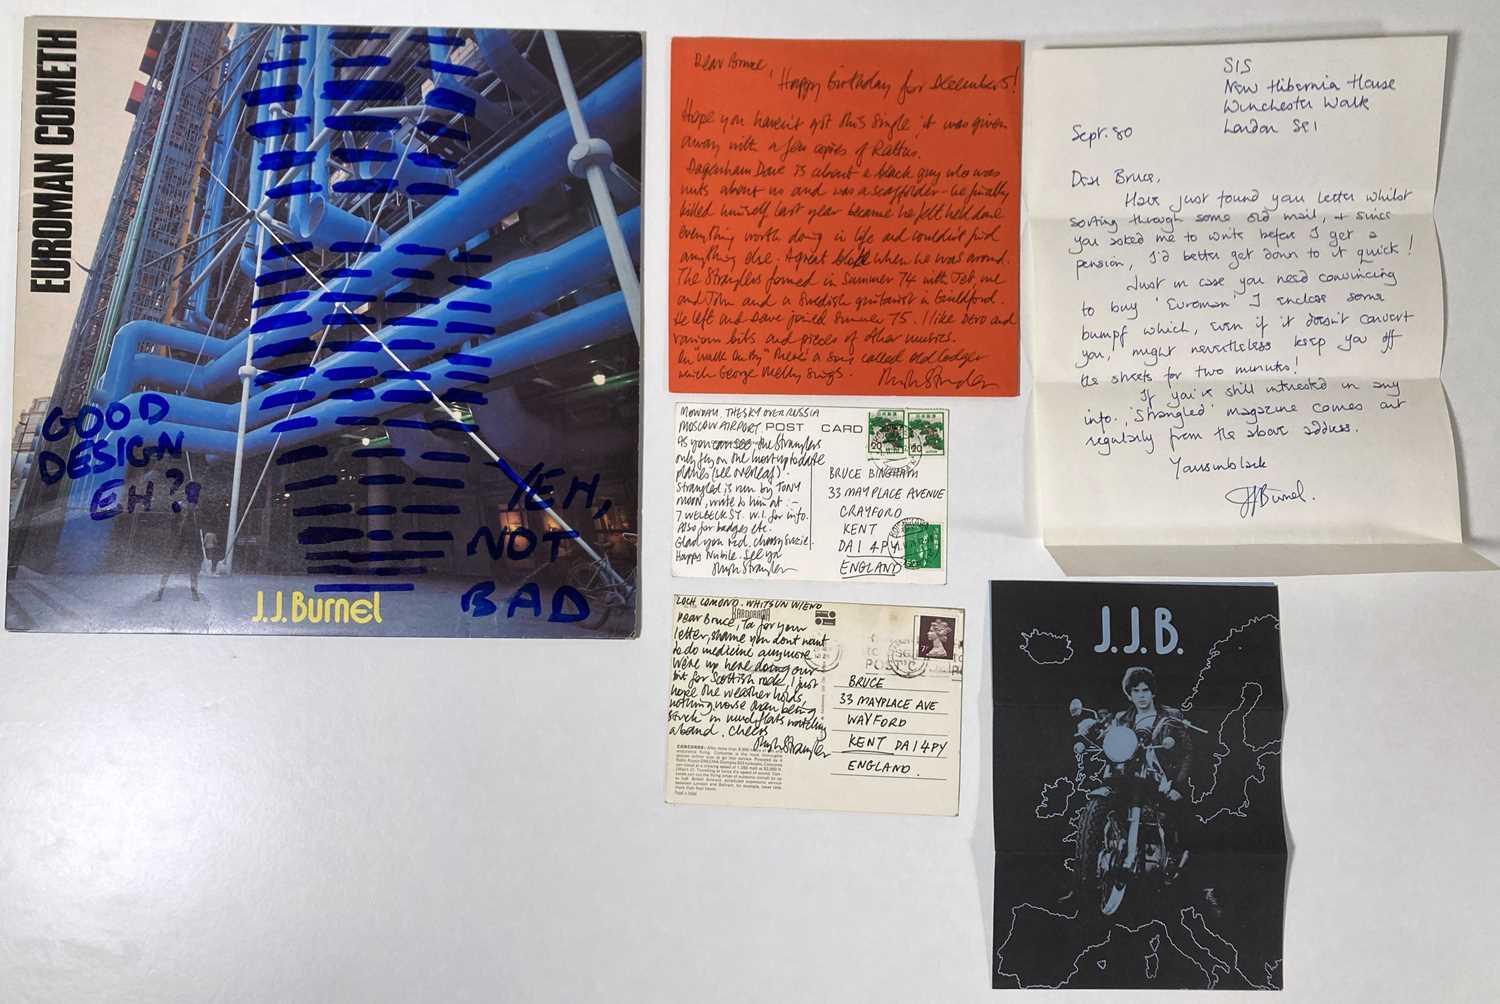 EUROMAN COMETH
GOOD
DESIGN
EH?
YEH,
NOT
BAD
J.J.Burnel
Dear Bruce,
Happy Birthday for December 5!
Hope you haven't got this single, it was given
away with a few copies of Rattus.
Dagenham Dave is about a black guy who was
nuts about us and was a scaffolder - he finally
killed himself last year because he felt he'd done
everything worth doing in life and couldn't find
anything else. A great when he was around.
The Stranglers formed in Summer 74 with Jet, me
and John and a Swedish guitarist in Guildford.
He left and Dave joined Summer 75. I like DEVO and
various bits and pieces of other musics.
In "Walk On By" there's a song called Old Codger
which George Melly sings. Hugh Strangler
MONDAY. THE SKY OVER RUSSIA
MOSCOW AIRPORT.
POST CARD
As you can see the Stranglers
only fly on the most up to date
planes (see overleaf).
Strangled is run by TONY
MOON, write to him at :-
7 WELBECK ST. W.1. for info.
Also for badges etc.
Glad you red. cherry Suzie!
Happy Nubile. See ya
Hugh Strangler
20
20
50
BRUCE BINGHAM
33 MAYPLACE AVENUE
CRAYFORD
KENT
DA1 4PY
ENGLAND
LOCH LOMOND - WHITSUN W/END
KARDORAMA
Dear Bruce, Ta for your
letter, shame you don't want
to do medicine anymore
We're up here doing our
bit for Scottish rock, I just
hope the weather holds,
nothing worse than being
stuck in mudflats watching
a band. Cheers
Hugh Strangler
7P
BRUCE
33 MAYPLACE AVE
WAYFORD
KENT DA14PY
ENGLAND.
SIS
New Hibernia House
Winchester Walk
London SE1
Sept. 80
Dear Bruce,
Have just found your letter whilst
sorting through some old mail, & since
you asked me to write before I get a
pension, I'd better get down to it quick!
Just in case you need convincing
to buy 'Euroman' I enclose some
bumpf which, even if it doesn't convert
you, might nevertheless keep you off
the streets for two minutes!
If you're still interested in any
info., 'Strangled' magazine comes out
regularly from the above address.
Yoursinblack
JJBurnel.
J.J.B.